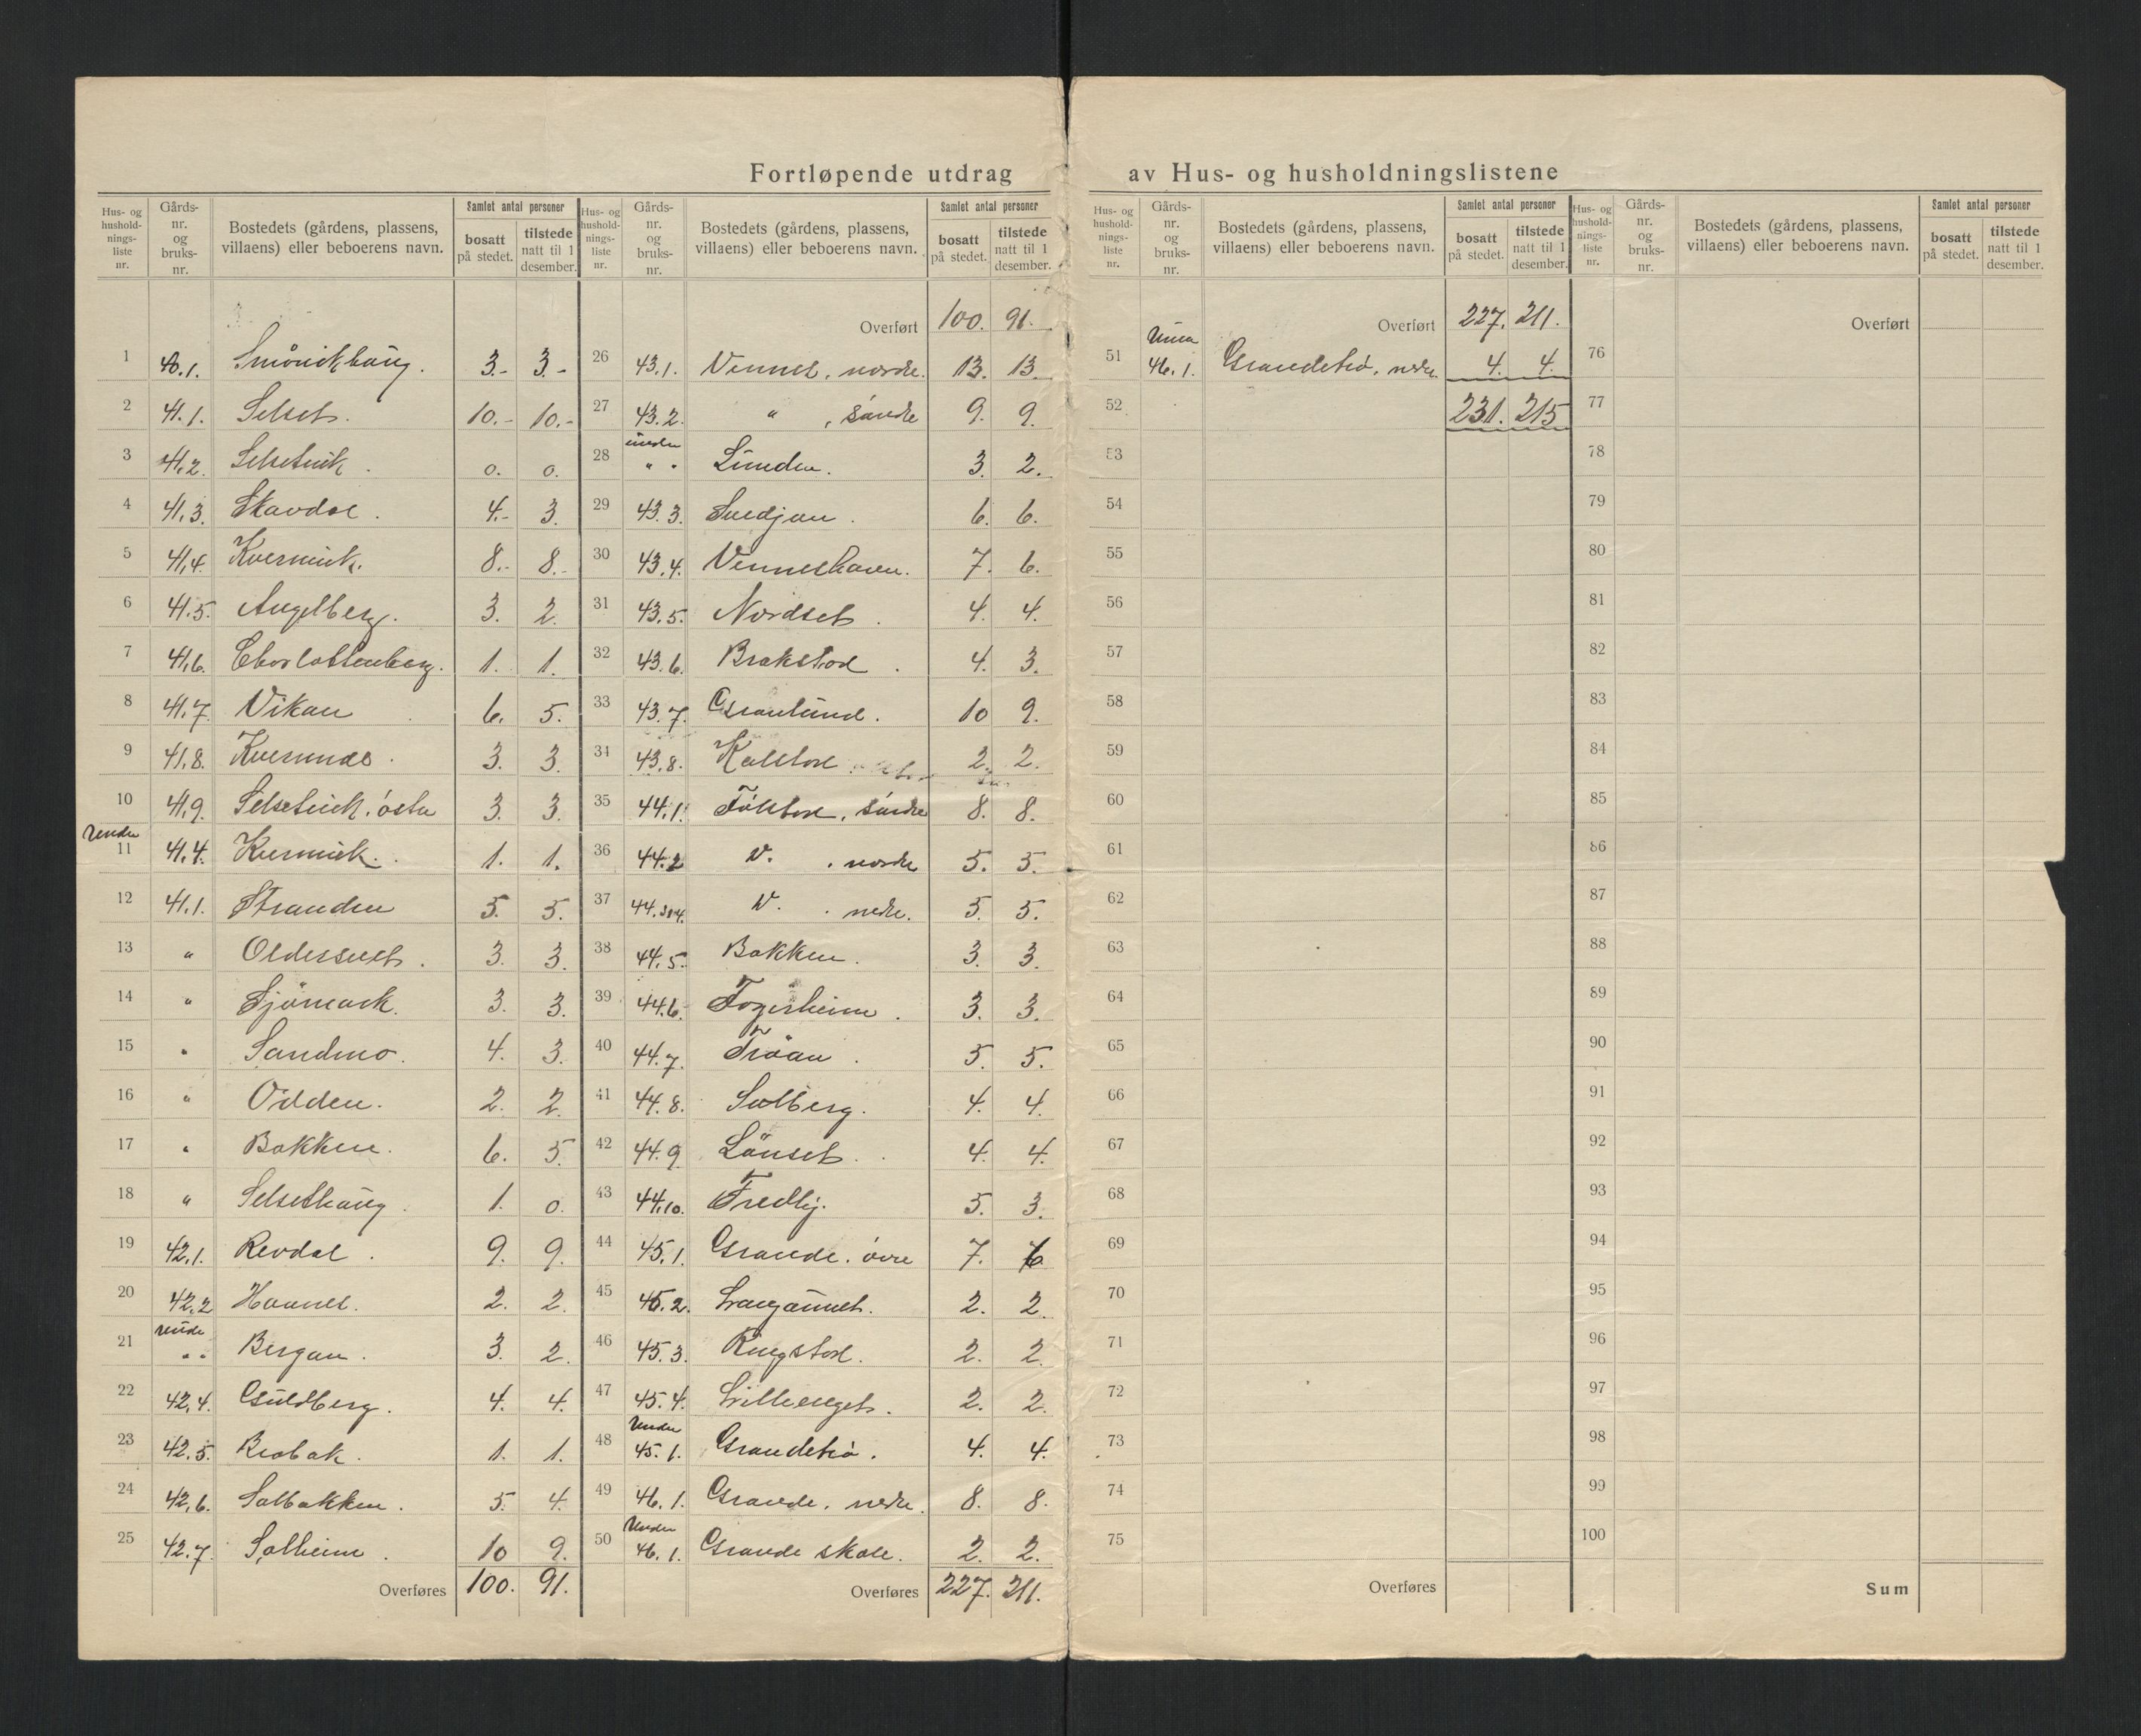 Fortløpende utdrag av Hus- og husholdningslistene
Hus- og hushold-nings-liste nr. Gårds-nr. og bruks-nr. Bostedets (gårdens, plassens, villaens) eller beboerens navn. Samlet antal personer bosatt på stedet. tilstede natt til 1 desember.
1 40.1. 3.- 3.-
2 41.1. Selset. 10.- 10.-
3 41.2. Selsetvik. 0. 0.
4 41.3. Skavdal. 4.- 3.
5 41.4. Kvernvik. 8.- 8.-
6 41.5. Angelberg. 3. 2.
7 41.6. Charlottenberg. 1. 1.
8 41.7. Vikan 6. 5.
9 41.8. 3. 3.
10 41.9. Selsetvik, östre 3. 3.
Under
11 41.4. Kvernvik. 1. 1.
12 41.1. Stranden 5. 5.
13 " 3. 3.
14 " Sjömark. 3. 3.
15 " Sandmo. 4. 3.
16 " Odden. 2. 2.
17 " Bakken. 6. 5.
18 " Selsethaug. 1. 0.
19 42.1. Revdal. 9. 9.
20 42.2 2. 2.
Under
21 " " Bergan. 3. 2.
22 42.4. Guldberg. 4. 4.
23 42.5. Brobak. 1. 1.
24 42.6. Solbakken. 5. 4.
25 42.7. Solheim. 10 9.
Overføres 100. 91.
Hus- og hushold-nings-liste nr. Gårds-nr. og bruks-nr. Bostedets (gårdens, plassens, villaens) eller beboerens navn. Samlet antal personer bosatt på stedet. tilstede natt til 1 desember.
Overført 100. 91.
26 43.1. Vennes, nordre. 13. 13.
27 43.2. " , söndre 9. 9.
under
28 " " Lunden. 3. 2.
29 43.3. Svedjan. 6. 6.
30 43.4. Venneshavn. 7. 6.
31 43.5. Nordset. 4. 4.
32 43.6. Brakstad. 4. 3.
33 43.7. Granlund. 10 9.
34 43.8. 2. 2.
35 44.1. söndre 8. 8.
36 44.2 D. , nordre 5. 5.
37 44.3og4. D. , nedre. 5. 5.
38 44.5. Bakken. 3. 3.
39 44.6. Fagerheim. 3. 3.
40 44.7. Tröan. 5. 5.
41 44.8. Solberg. 4. 4.
42 44.9. Lönset. 4. 4.
43 44.10. Fredly. 5. 3.
44 45.1. Grande, övre 7. 6
45 45.2. 2. 2.
46 45.3. Ringstad. 2. 2.
47 45.4. Lilleenget. 2. 2.
Under
48 45.1. Grandetrö. 4. 4.
49 46.1. Grande, nedre. 8. 8.
Under
50 46.1. Grande skole. 2. 2.
Overføres 227. 211.
Hus- og hushold-nings-liste nr. Gårds-nr. og bruks-nr. Bostedets (gårdens, plassens, villaens) eller beboerens navn. Samlet antal personer bosatt på stedet. tilstede natt til 1 desember.
Overført 227. 211.
Under
51 46.1. Grandetrö, nedre. 4. 4.
52 231. 215
53
54
55
56
57
58
59
60
61
62
63
64
65
66
67
68
69
70
71
72
73
74
75
Overføres
Hus- og hushold-nings-liste nr. Gårds-nr. og bruks-nr. Bostedets (gårdens, plassens, villaens) eller beboerens navn. Samlet antal personer bosatt på stedet. tilstede natt til 1 desember.
Overført
76
77
78
79
80
81
82
83
84
85
86
87
88
89
90
91
92
93
94
95
96
97
98
99
100
Sum